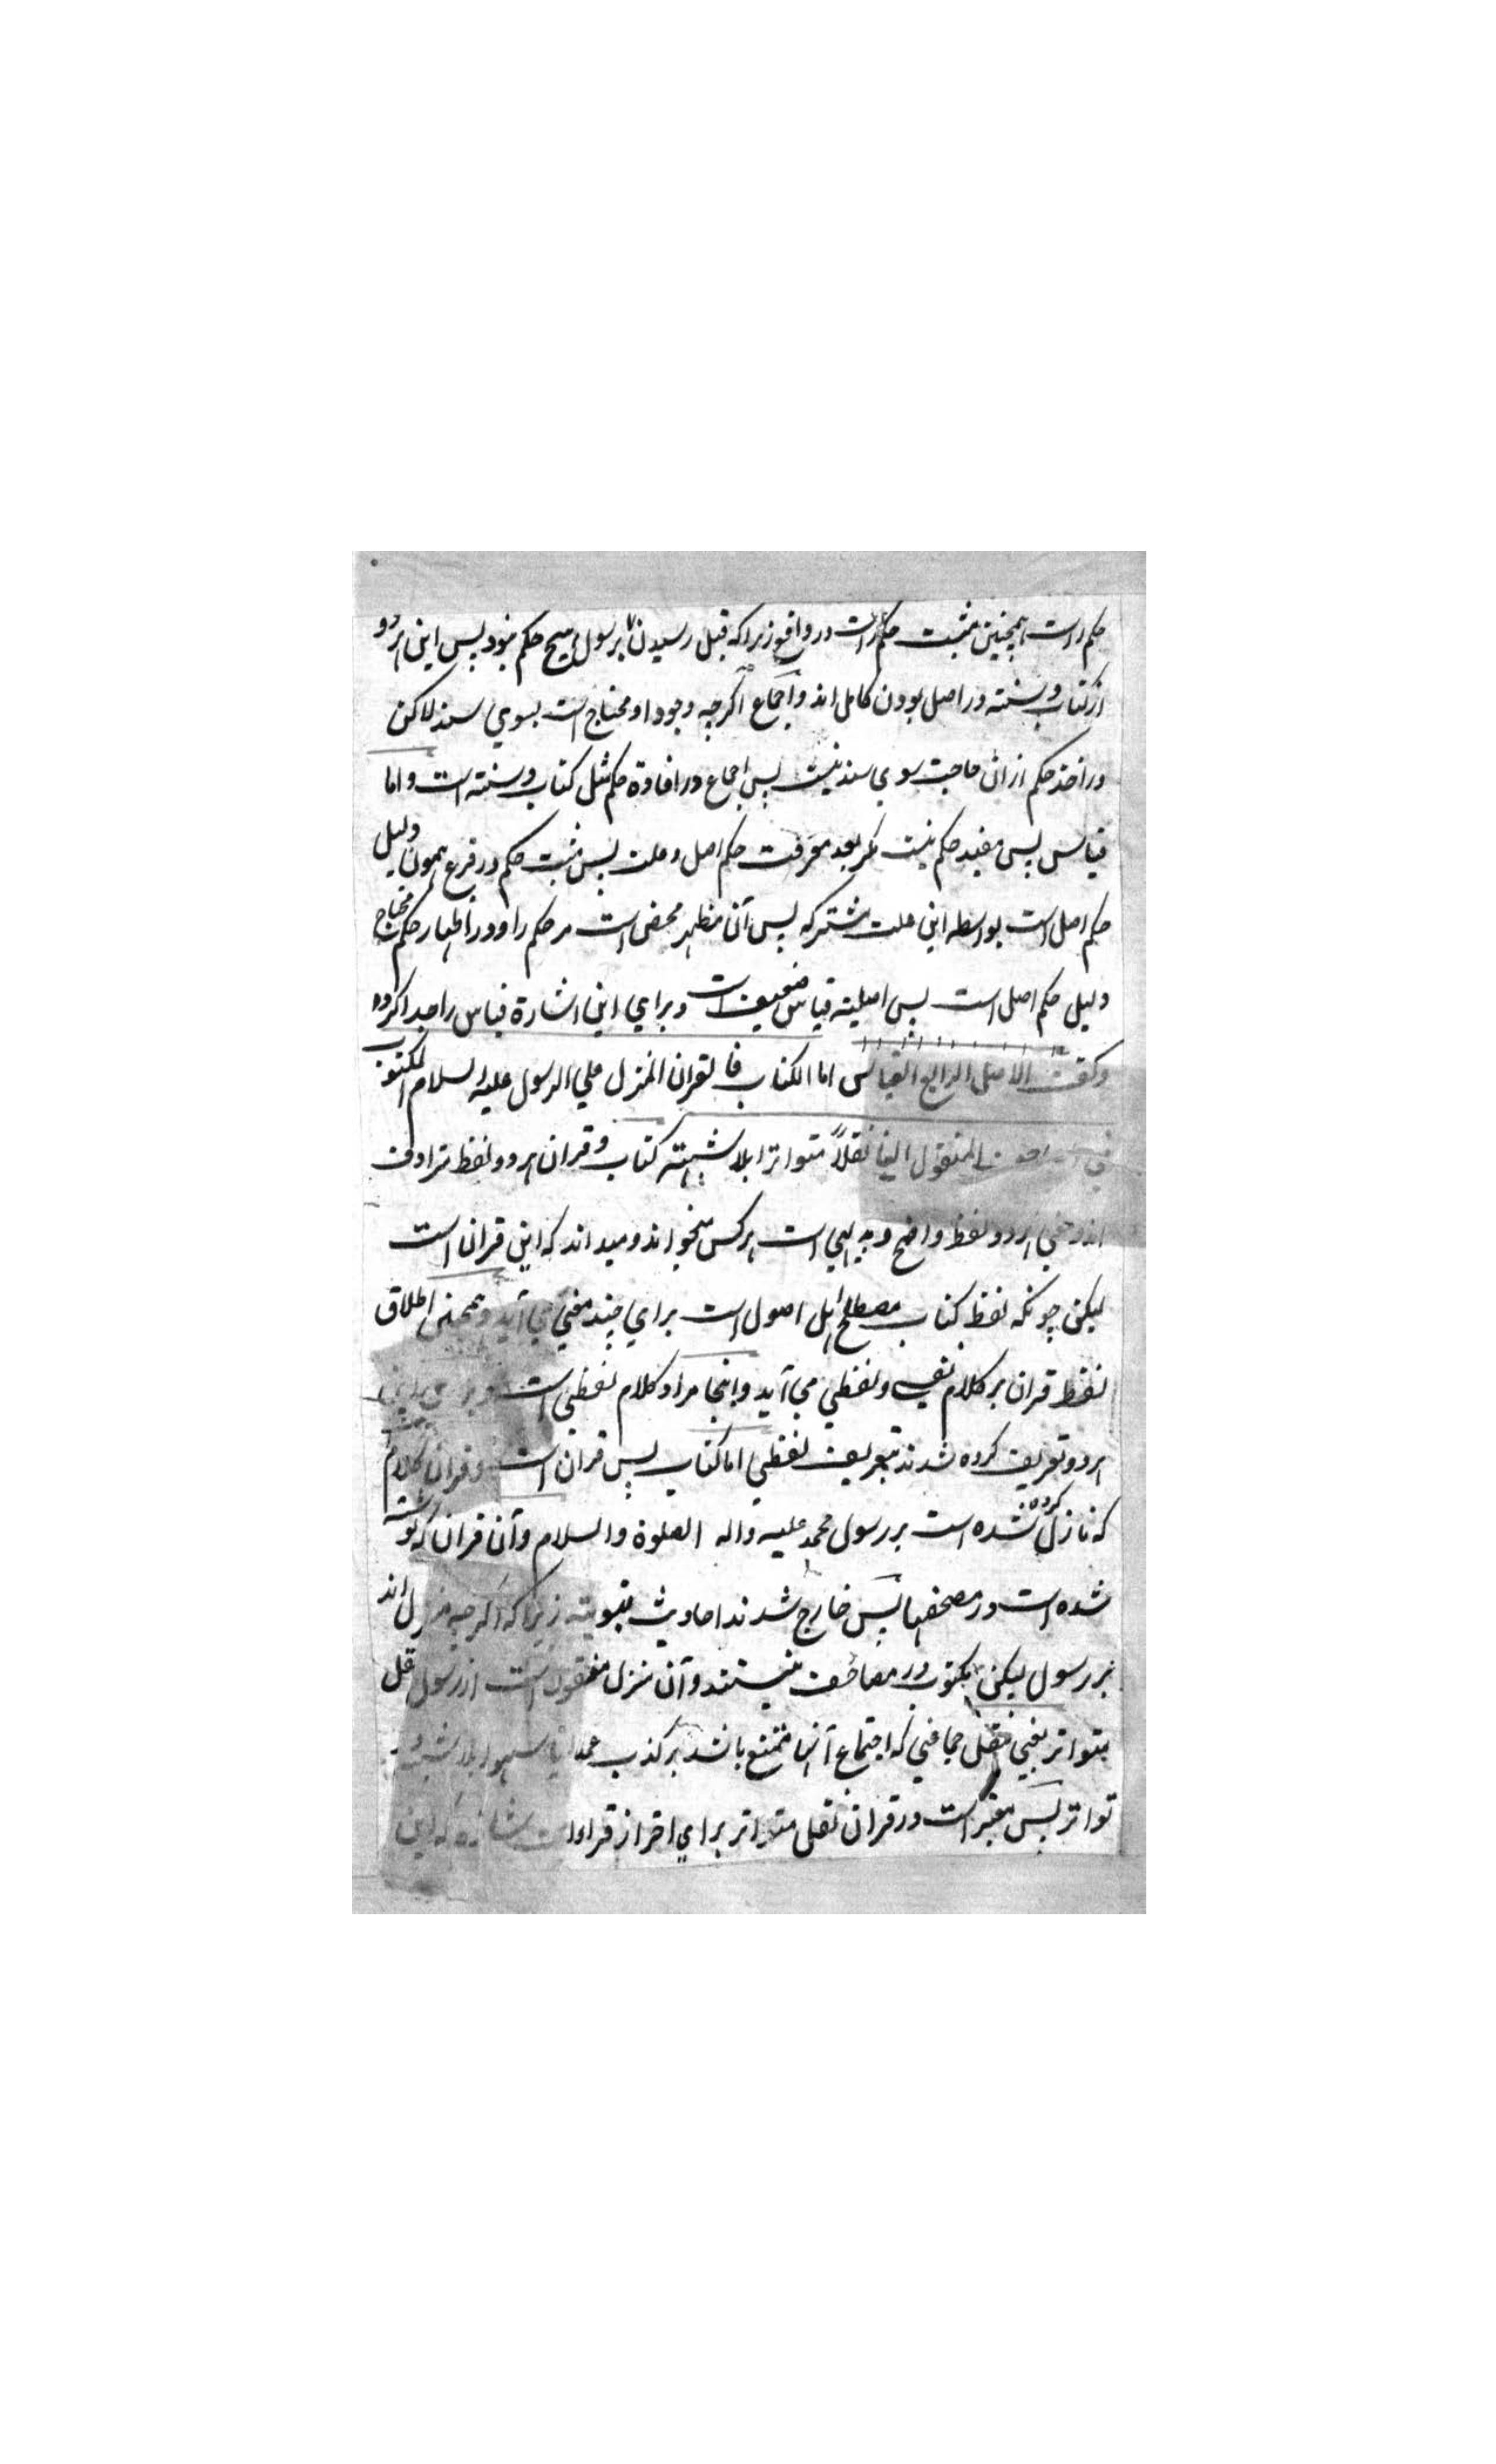 حکم راست همچنین مثبت حکم راست در واقع زیرا که قبل رسیدن برسول هیچ حکم نبود پس این هر دو
از کتاب و سنته در اصل بودن کامل اند و اجماع اکرچه وجود او محتاج است بسوی سند لاکن
در اخذ حکم از ان حاجت سوی سند نیست پس اجماع در افادة حکم مثل کتاب و سنته است و اما
قیاس پس مفید حکم نیست مکر بعد معرفت حکم اصل و علت پس مثبت حکم در فرع همون دلیل
حکم اصل است بواسطه این علت مشترکه پس آن مظهر محض است مر حکم را و در اظهار حکم محتاج
دلیل حکم اصل است پس اصلیته قیاس ضعیف است و برای این اشارة قیاس را جدا کرده
وکفت الاصل الرابع القیاس اما الکتاب فالقران المنزل علی الرسول علیه السلام المکتوب
فی المصاحف المنقول الینا نقلاً متواترا بلا شبهته کتاب و قران هر دو لفظ مترادف
اند معنی هر دو لفظ واضح و بدیهی است هر کس میخواند و میداند که این قران است
لیکن چونکه لفظ کتاب مصطلح اهل اصول است برای چند معنی می آید و همچنین اطلاق
لفظ قران بر کلام نفسی و لفظی می آید و اینجا مراد کلام لفظی است و برای این
هر دو تعریف کرده شدند بتعریف لفظی اما کتاب پس قران است و قران کلام
که نازل کرده شده است بر رسول محمد علیه واله الصلوة والسلام و آن قران که نوشته
شده است در مصحفها پس خارج شدند احادیث نبویته زیرا که اکرچه منزل اند
بر رسول لیکن مکتوب در مصاحف نیستند و آن منزل منقول است از رسول نقل
بتواتر یعنی نقل جماعتی که اجتماع آنها ممتنع باشد بر کذب عمدا یا سهوا بلا شبه در
تواتر پس معتبر است در قران نقل متواتر برای احتراز قراءات شاذه که این